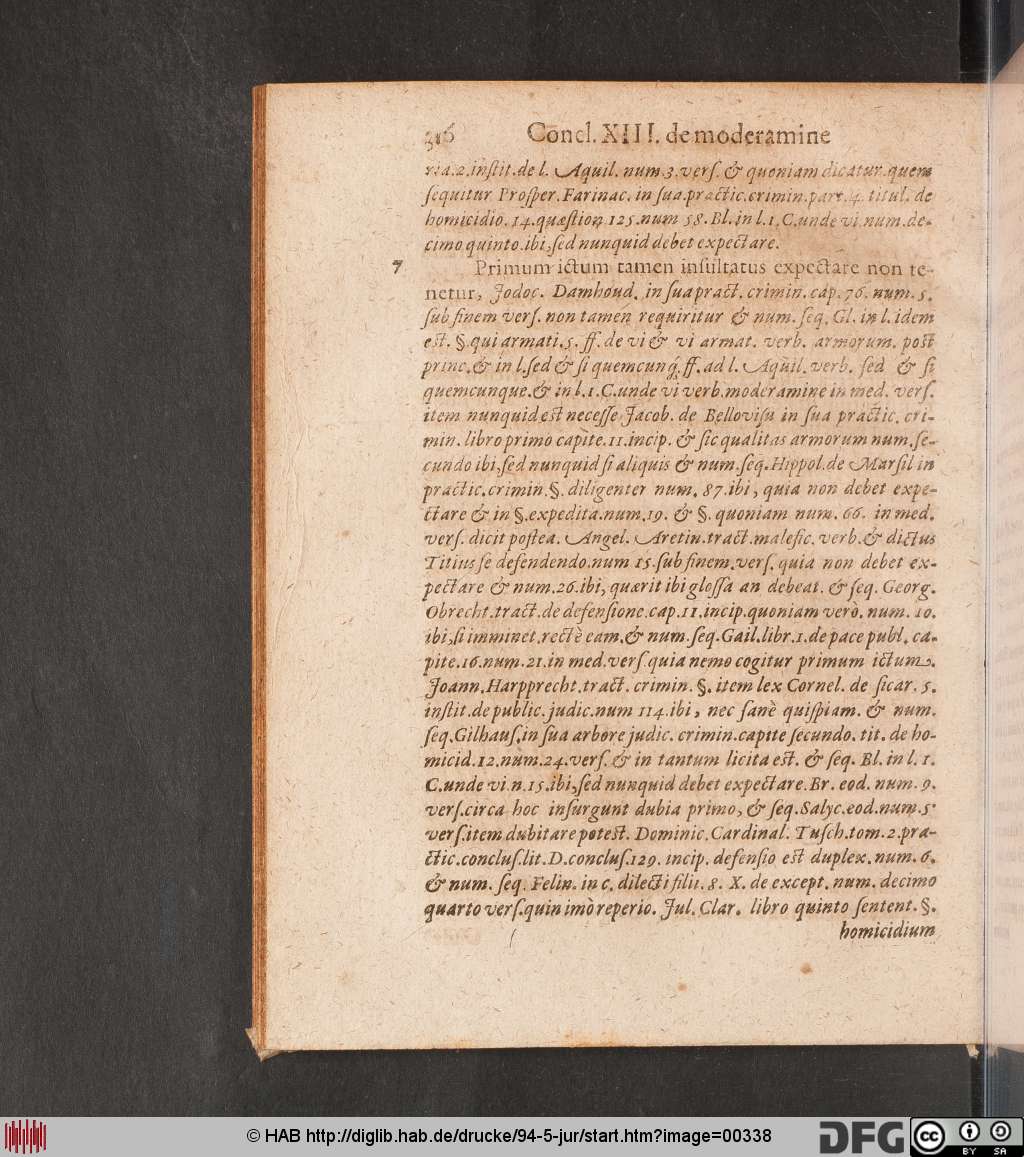 316 Concl. XIII. de moderamine
ria.2.instit.de l. Aquil. num.3.vers. & quoniam dicatur.quem
sequitur Prosper.Farinac. in sua practic.crimin.part.4. titul. de
homicidio. 14.quæstion 125.num 58. Bl. in l.1.C.unde vi num.de-
cimo quinto.ibi, sed nunquid debet expectare.
7 Primum ictum tamen insultatus expectare non te-
netur, Jodoc. Damhoud. in sua pract. crimin. cap. 76. num. 5.
sub finem vers. non tamen requiritur & num. seq. Gl. in l. idem
est. §. qui armati. 5. ff. de vi & vi armat. verb. armorum. post
princ. & in l. sed & si quemcunq́. ff. ad l. Aquil. verb. sed & si
quemcunque. & in l.1.C.unde vi verb.moderamine in med. vers.
item nunquid est necesse Jacob. de Bellovisu in sua practic. cri-
min. libro primo capite. 11. incip. & sic qualitas armorum num. se-
cundo ibi, sed nunquid si aliquis & num. seq. Hippol. de Marsil in
practic.crimin.§. diligenter num. 87. ibi, quia non debet expe-
ctare & in §.expedita.num.19. & §. quoniam num. 66. in med.
vers. dicit postea. Angel. Aretin.tract.malefic. verb.& dictus
Titius se defendendo.num 15.sub finem.vers. quia non debet ex-
pectare & num.26.ibi, quærit ibi glossa an debeat. & seq. Georg.
Obrecht.tract.de defensione.cap.11.incip.quoniam verò. num. 10.
ibi, si imminet.rectè eam.& num.seq.Gail.libr.1.de pace publ. ca-
pite.16.num.21.in med.vers.quia nemo cogitur primum ictum.
Joann.Harpprecht.tract. crimin. §. item lex Cornel. de sicar. 5.
instit.de public. judic.num 114.ibi, nec sanè quispiam. & num.
seq.Gilhaus.in sua arbore judic. crimin.capite secundo. tit. de ho-
micid.12.num.24.vers. & in tantum licita est. & seq. Bl. in l. 1.
C.unde vi.n.15.ibi, sed nunquid debet expectare. Br. eod. num. 9.
vers.circa hoc insurgunt dubia primo, & seq.Salyc.eod.num.5.
vers.item dubitare potest. Dominic.Cardinal. Tusch.tom.2.pra-
ctic.conclus.lit. D.conclus.129. incip. defensio est duplex. num. 6.
& num. seq. Felin. in c. dilecti filii. 8. X. de except. num. decimo
quarto vers.quin imò reperio. Jul. Clar. libro quinto sentent. §.
homicidium
© HAB http://diglib.hab.de/drucke/94-5-jur/start.htm?image=00338
DFG
cc BY SA